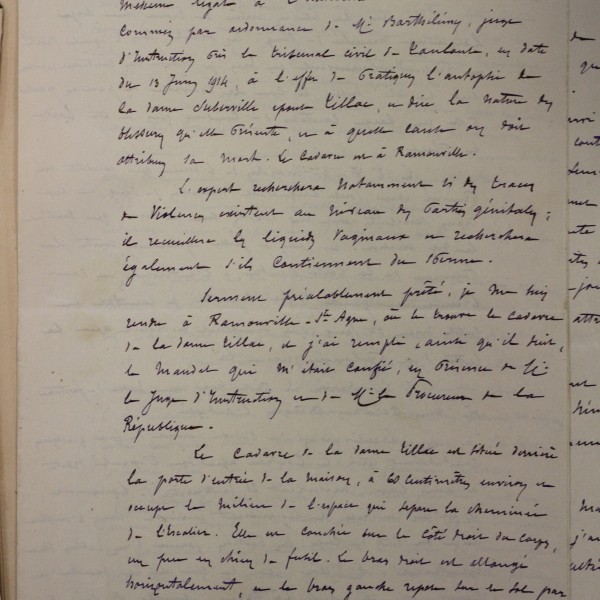 Médecin légal à
Commis par ordonnance de Mr Barthélémy, juge
d'Instruction près le tribunal civil de Toulouse, en date
du 13 Juin 1914, à l'effet de pratiquer l'autopsie de
la dame Suberville épouse Tillac, et dire la nature des
blessures qu'elle présente, et à quelle cause on doit
attribuer sa mort. Le Cadavre est à Ramonville.
L'expert recherchera notamment si des traces
de violences existent au niveau des parties génitales ;
il recueillera les liquides vaginaux et recherchera
également s'ils contiennent du sperme.
Serment préalablement prêté, je me suis
rendu à Ramonville-St-Agne, où se trouve le cadavre
de la dame Tillac, et j'ai rempli, ainsi qu'il suit,
le Mandat qui m'était confié, en présence de Mr
le Juge d'Instruction et de Mr le Procureur de la
République.
Le Cadavre de la dame Tillac est située derrière
la porte d'entrée de la maison, à 60 centimètres environ et
occupe le milieu de l'espace qui sépare la cheminée
de l'Escalier. Elle est couchée sur le côté droit du corps,
un peu en chien de fusil. Le bras droit est allongé
horizontalement, et le bras gauche repose sur le sol par